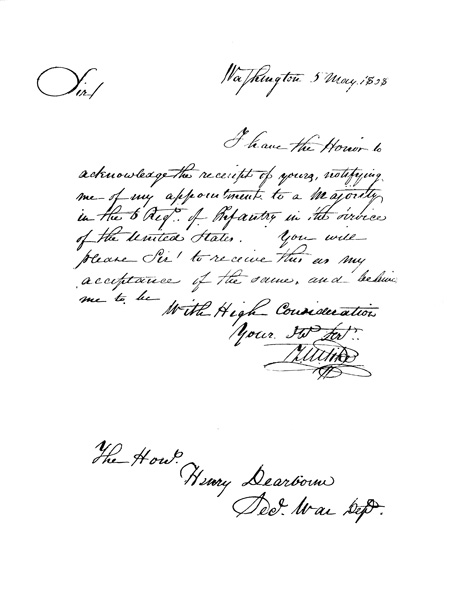 Washington 5 May, 1808
Sir/
I have the Honor to
acknowledge the receipt of yours, notifying
me of my appointment to a Majority
in the 6 Regt. of Infantry in the service
of the United States. You will
please Sir! to receive this as my
acceptance of the same, and believe
me to be
With High Consideration
Your Obt Servt.
Z.M. Pike
The Honl.
Henry Dearborn
Sec. War Dept.